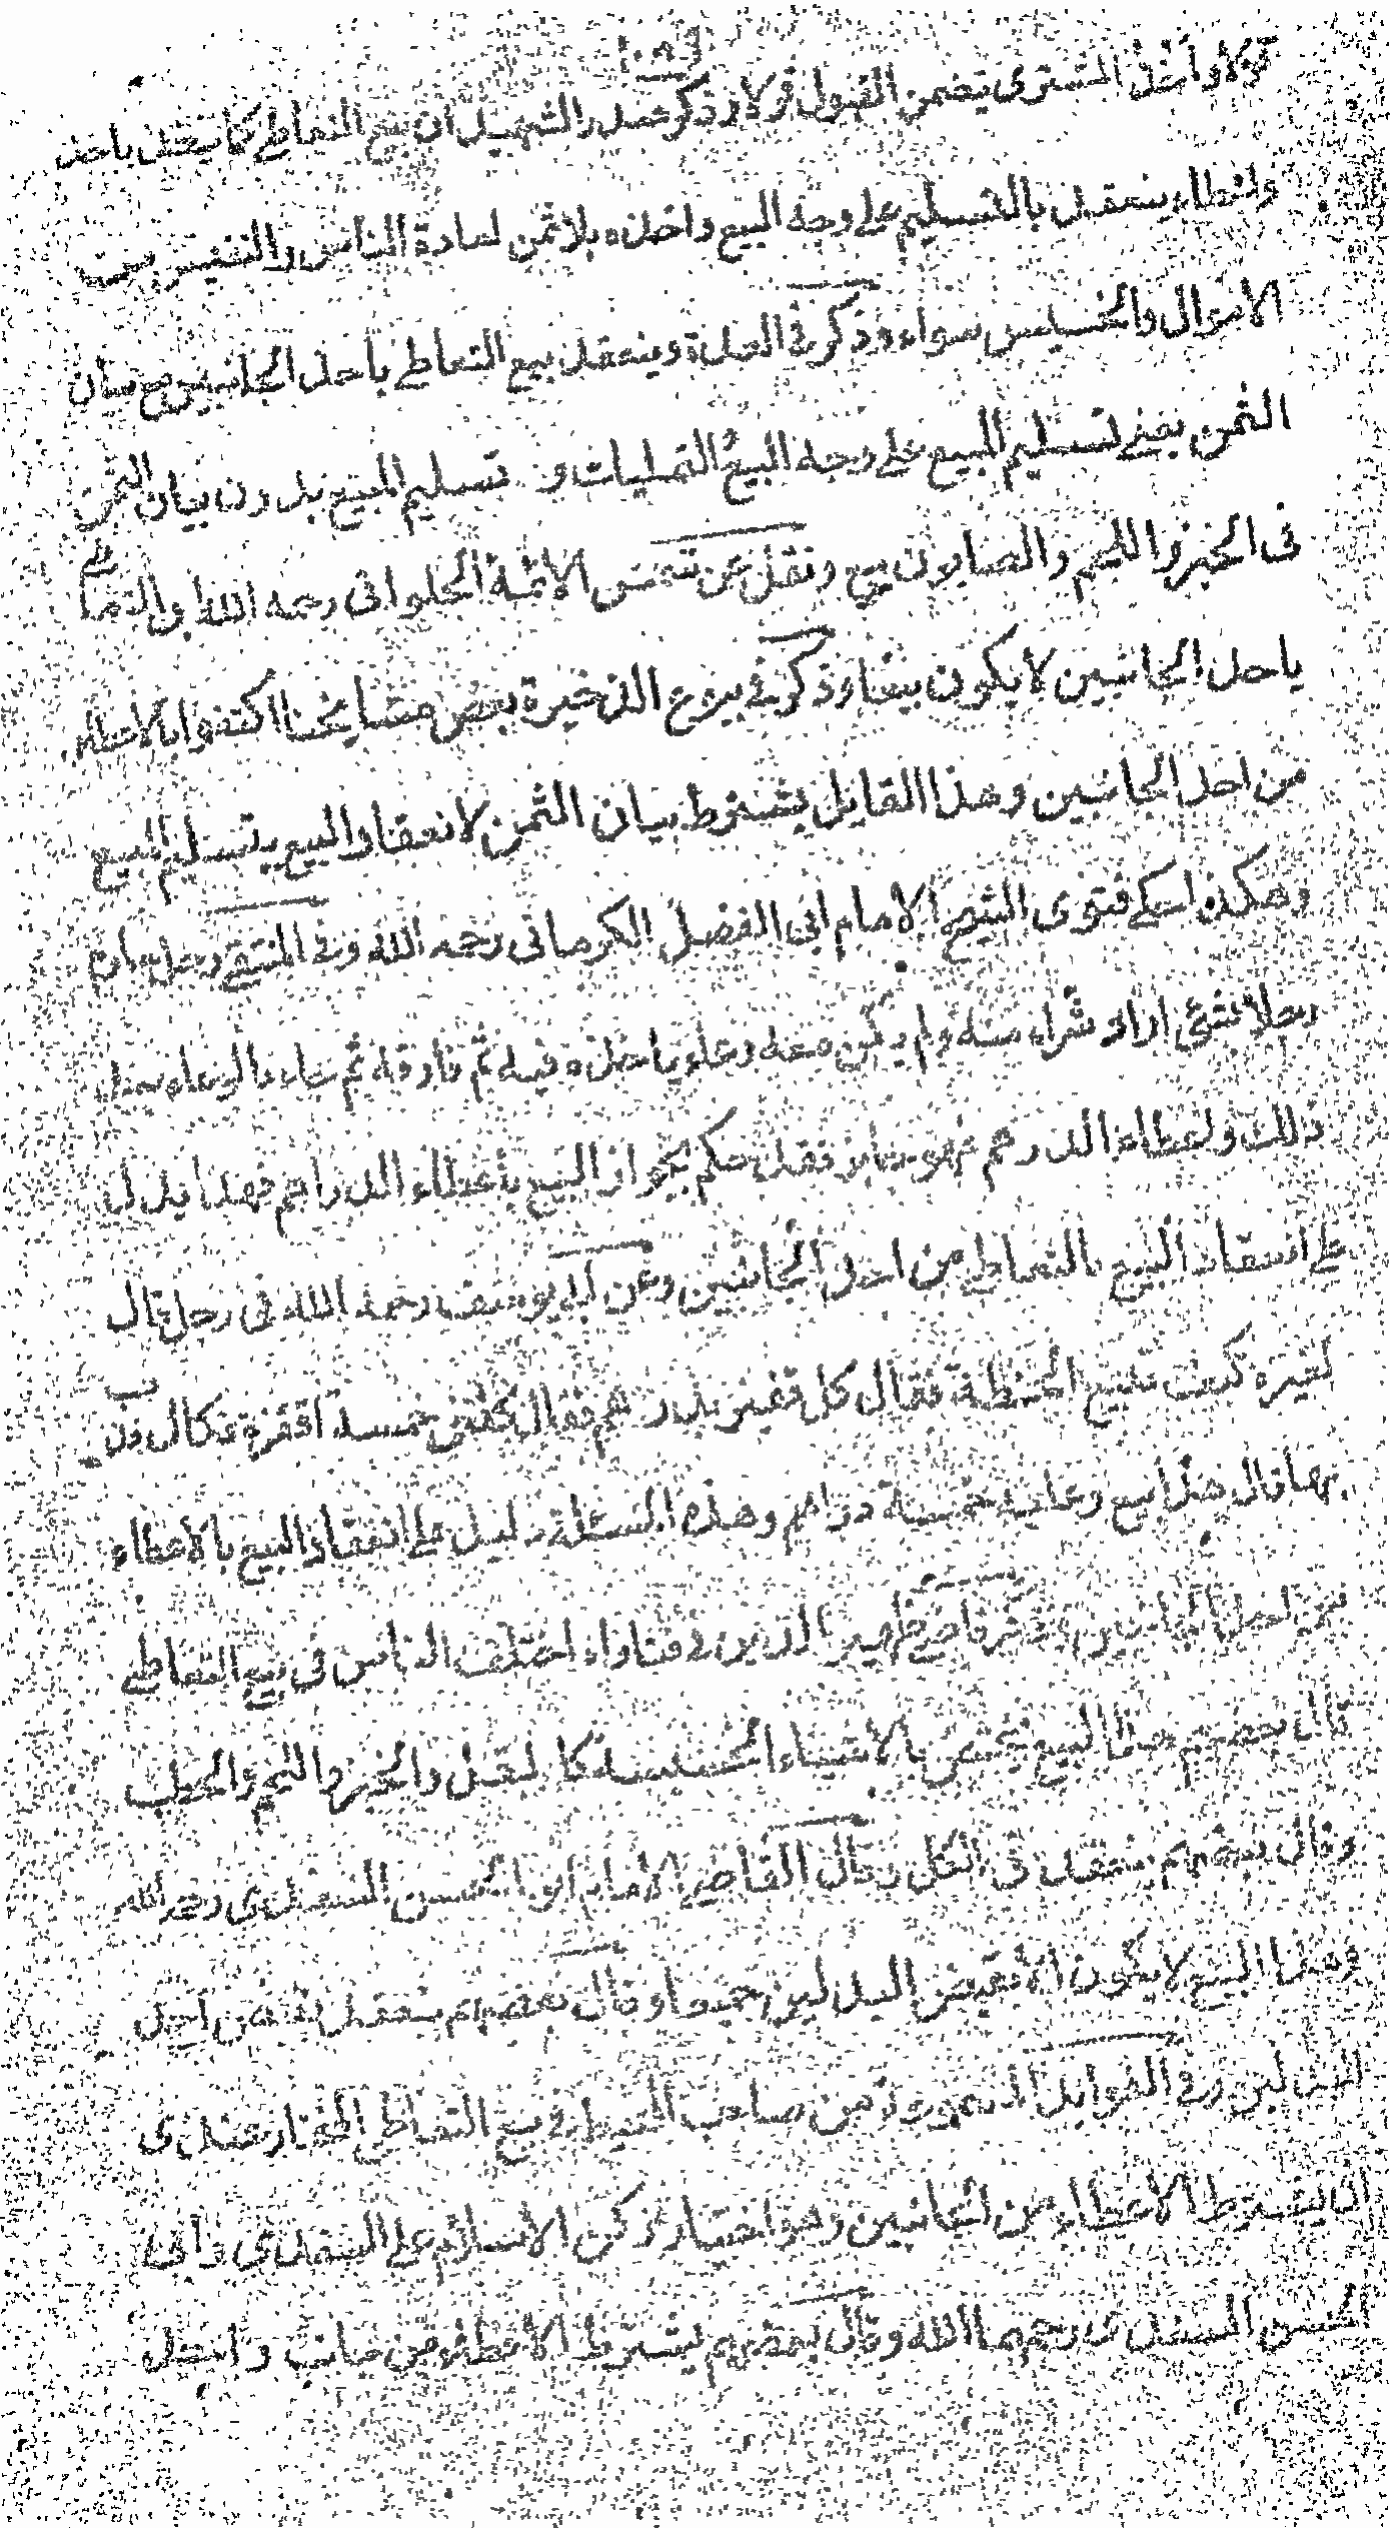 قولا واخذ المشترى يتضمن القبول قولا وذكر فصل والتسهيل ان بيع التعاطي كما ينعقد باخذ
واعطاء ينعقد بالتسليم على وجه البيع واخذه بلا ثمن لعادة الناس والنفيس من
الاموال والخسيس سواء وذكر في العدة وينعقد بيع التعاطي باحد الجانبين مع بيان
الثمن يعني تسليم المبيع على وجه البيع التمليك و تسليم المبيع بدون بيان الثمن
فى الخبز واللحم والصابون بيع ونقل عن شمس الائمة الحلوانى رحمه الله والتعاطي
باحد الجانبين لا يكون بيعا وذكر في بيوع الذخيرة بعض مشايخنا اكتفوا بالاعطاء
من احد الجانبين وهذا القايل يشترط بيان الثمن لانعقاد البيع بتسليم المبيع
وهكذا حكي فتوى الشيخ الامام ابى الفضل الكرمانى رحمه الله وفي المنتقى رجل
رجلا بشئ اراد شراء منه ولم يكن معه وعاء ياخذه فيه ثم فارقه ثم جاء بالوعاء بعد
ذلك واعطاء الدرهم فهو جايز فقد حكم بجواز البيع باعطاء الدراهم فهذا يدل
على انعقاد البيع بالتعاطي من احد الجانبين وعن ابي يوسف رحمه الله فى رجل قال
لغيره كيف تبيع الحنطة فقال كل قفيز بدرهم فقال كلنى خمسة اقفزة فكال فذهب
بها قال هذا بيع وعليه خمسة دراهم وهذه المسئلة دليل على انعقاد البيع بالاعطاء
من احد الجانبين وذكر قاضي ظهير الدين في فتاواه اختلف الناس فى بيع التعاطي
قال بعضهم هذا البيع يختص بالاشياء الخسيسة كالبقل والخبز واللحم والحطب
وقال بعضهم ينعقد فى الكل وقال القاضي الامام ابو الحسن السغدى رحمه الله
وهذا البيع لا يكون الا بقبض البدلين جميعا وقال بعضهم ينعقد بقبض احد
البدلين وفي الفوائد من صاحب المحيط في بيع التعاطي المختار عندى
ان يشترط الاعطاء من الجانبين وهو اختيار ركن الاسلام على السغدى وابى
الحسن السغدى رحمهما الله وقال بعضهم يشترط الاعطاء من جانب واحد